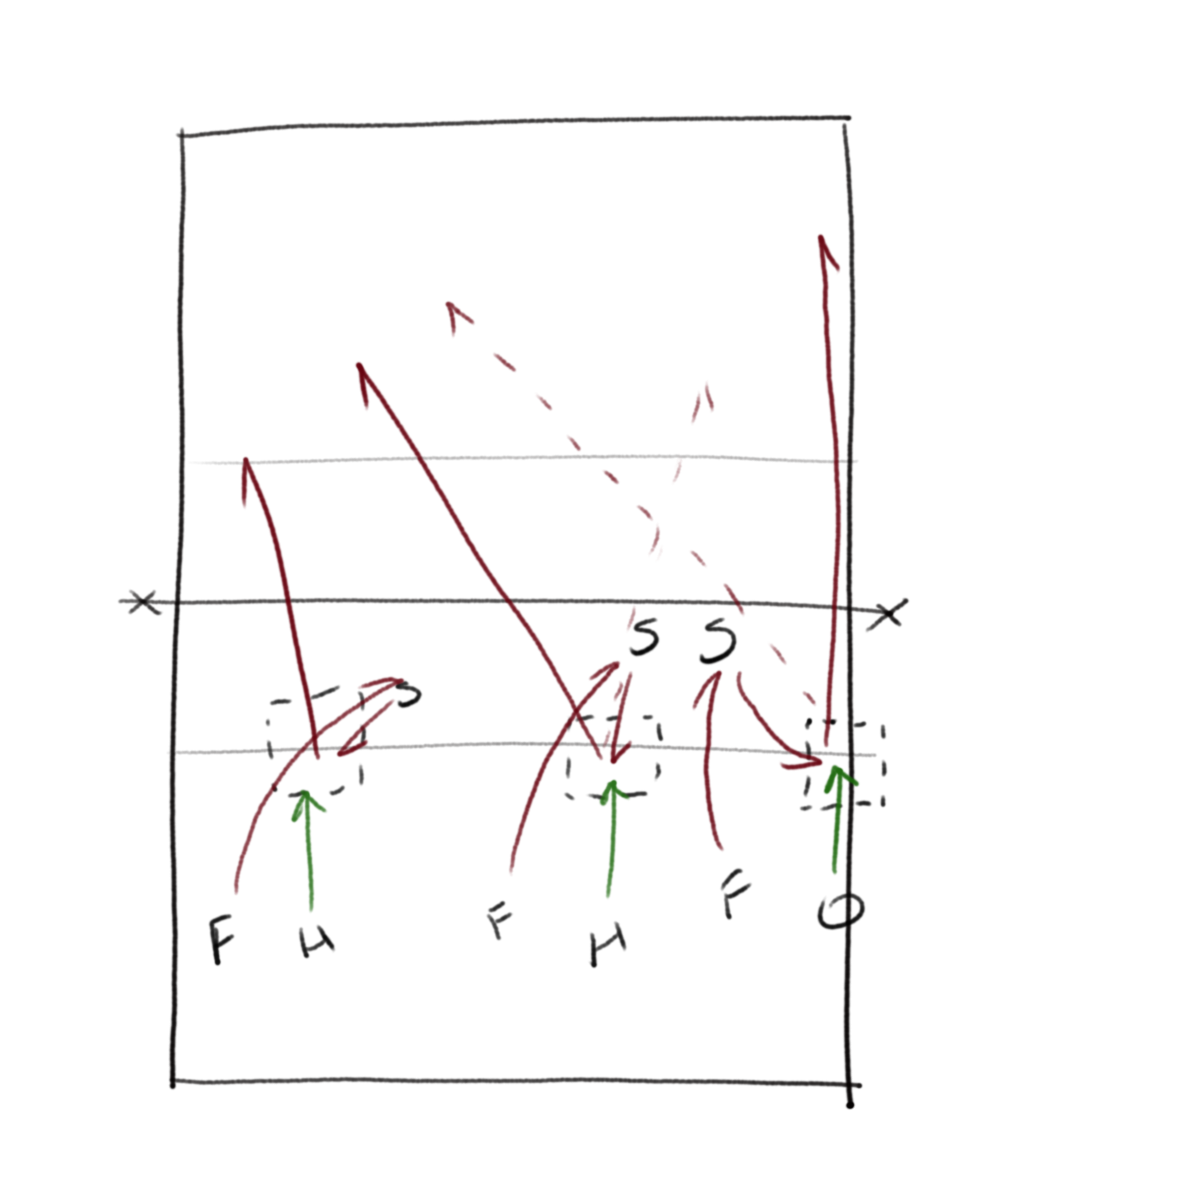 S S
S
F H F H F O